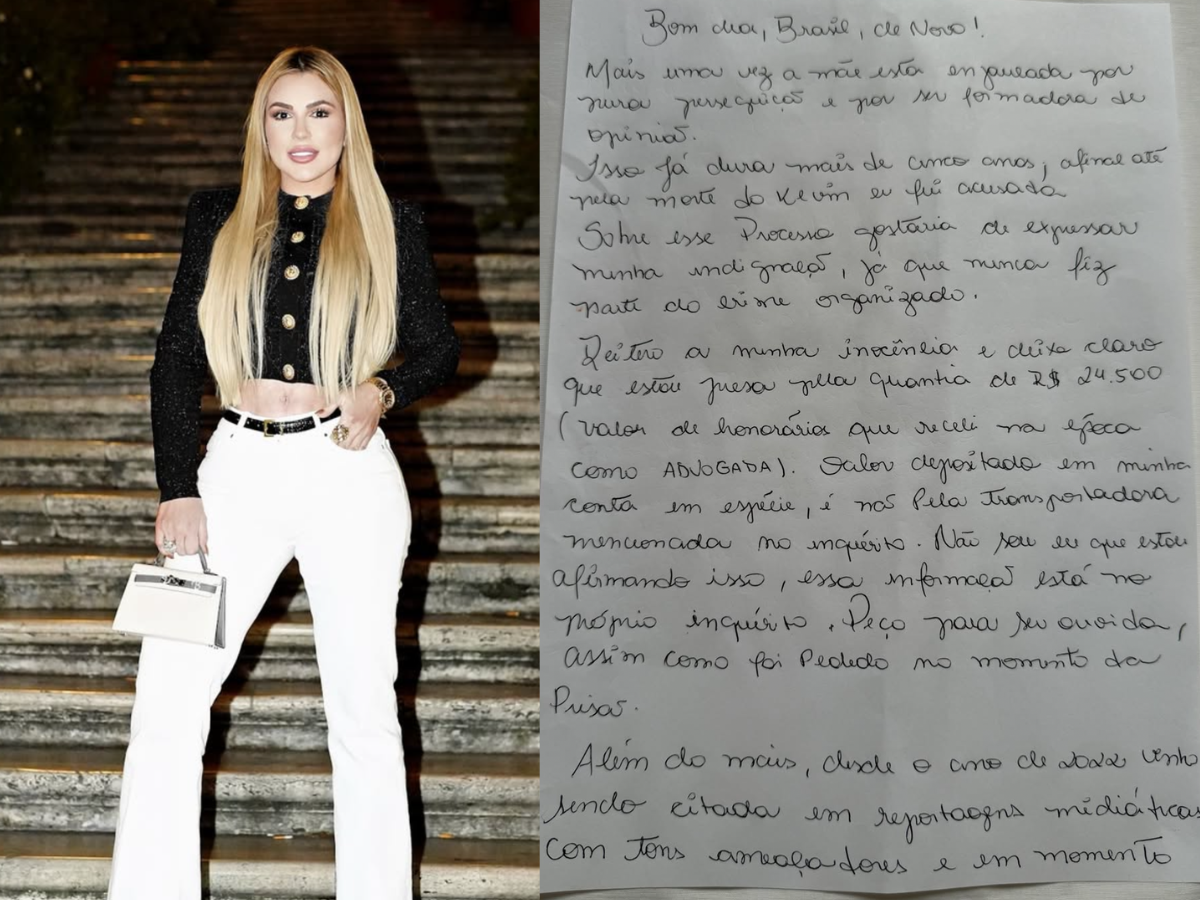 Bom dia, Brasil, de Novo!
Mais uma vez a mãe está enjaulada por
pura perseguiçaõ e por ser formadora de
opiniaõ.
Isso já dura mais de cinco anos, afinal até
pela morte do Kevin eu fui acusada
Sobre esse Processo gostaria de expressar
minha indignaçaõ, já que nunca fiz
parte do crime organizado.
Reitero a minha inocência e deixo claro
que estou presa pela quantia de R$ 24.500
(valor de honorários que recebi na época
como ADVOGADA). Valor depositado em minha
conta em espécie, e naõ Pela transportadora
mencionada no inquérito. Não sou eu que estou
afirmando isso, essa informaçaõ está no
próprio inquérito. Peço para ser ouvida,
assim como foi Pedido no momento da
Prisaõ.
Além do mais, desde o ano de 2022 venho
sendo citada em reportagens midiáticas
com tons ameaçadores e em momento